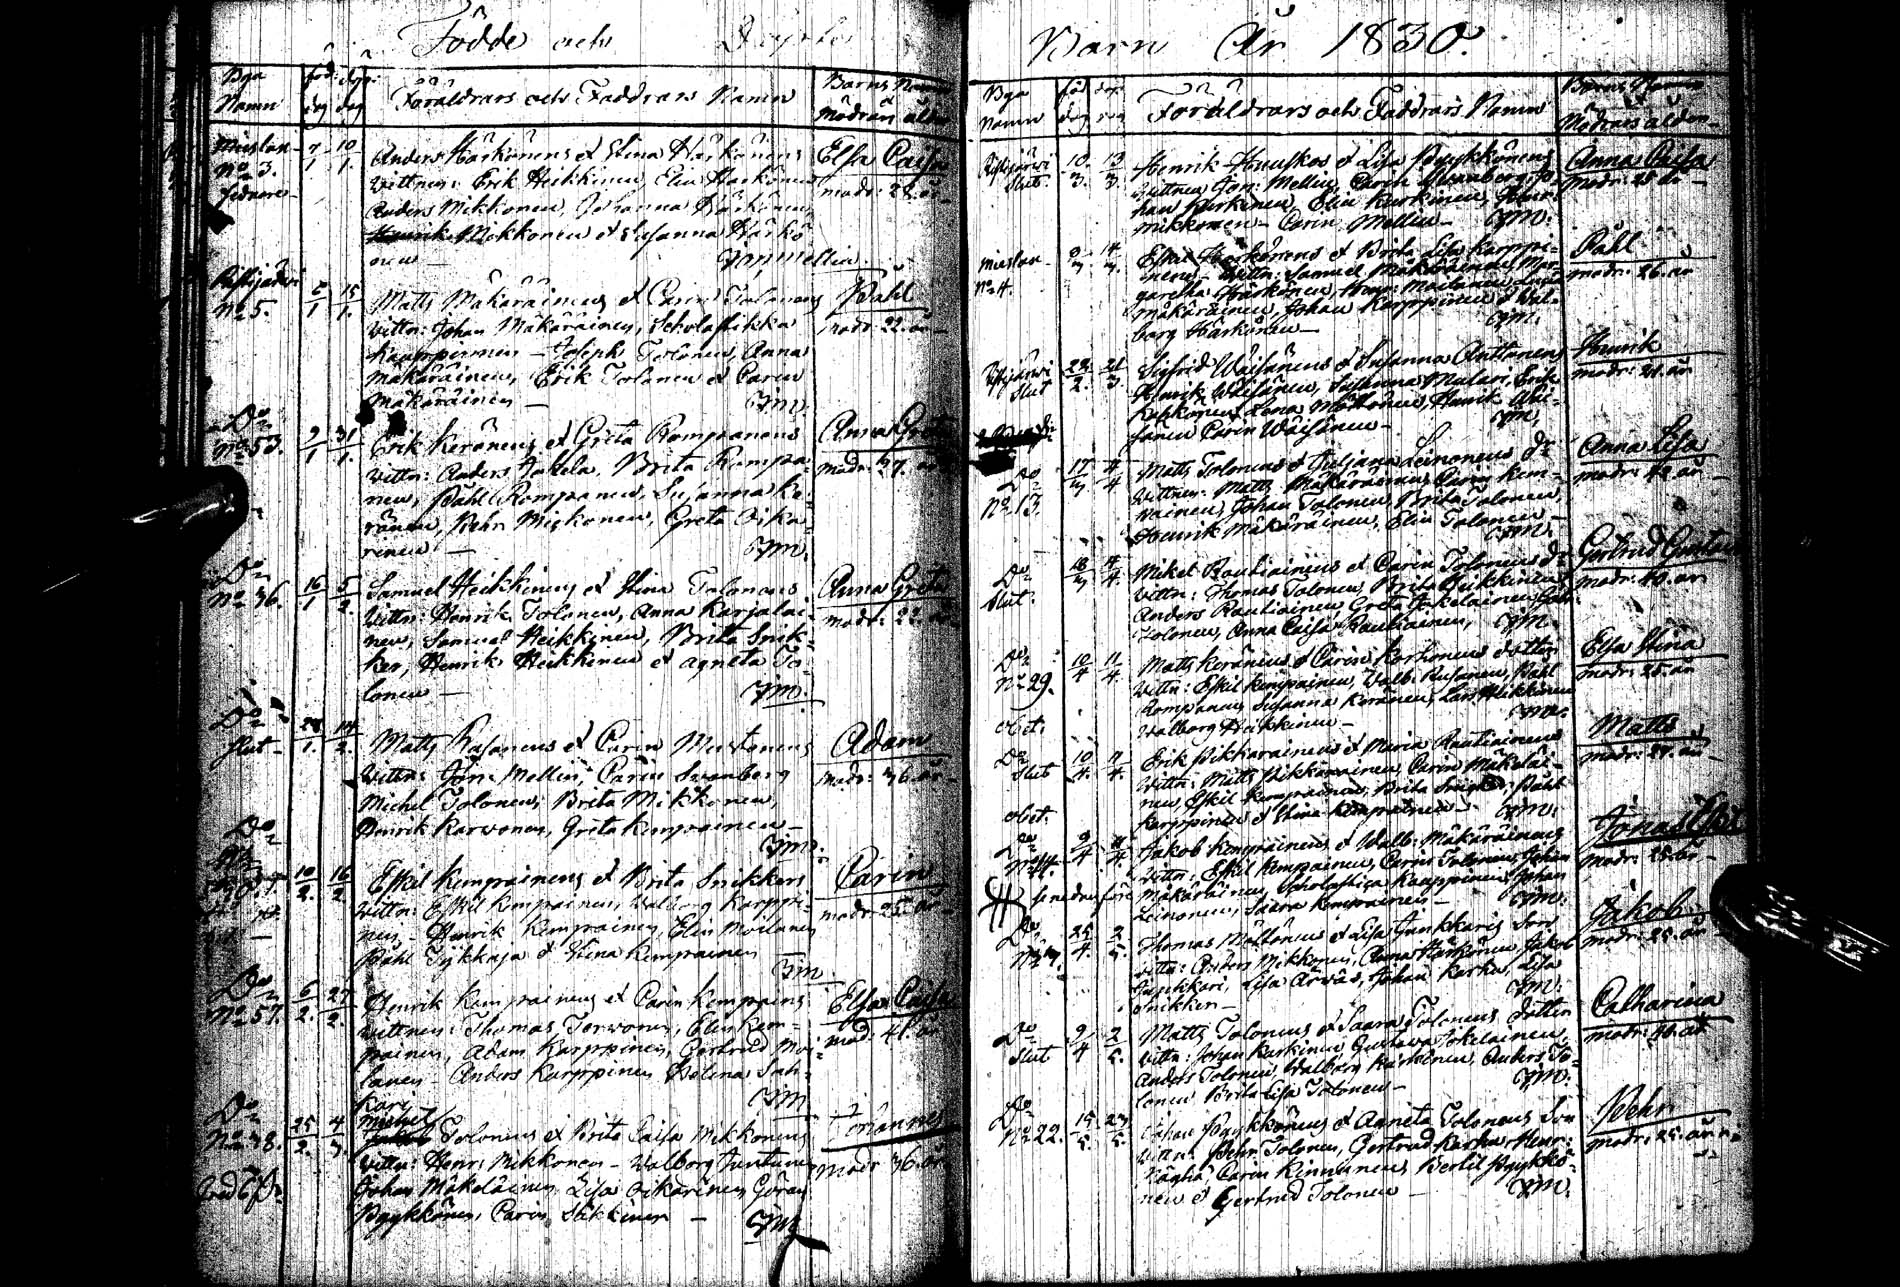 Födde och Döpte
Bya Namn
föd: dag
döp: dag
Föräldrars och Faddrars Namn
Barns Namn
Mödrars ålder
Mieslax
No 3.
7/1 10/1
Anders Härkönens et Stina Härkönens
Vittnen: Erik Heikkinen, Elin Härkönen
Anders Mikkonen, Johanna Härkönen,
Henrik Mokkonen et Susanna Härkö
nen
Joh Mellin
Elsa Caisa
modr: 28. år
No 5.
6/1 15/1
Matts Mäkäräinens et Carin Tolonens
Vittn: Johan Mäkäräinen, Scholastikka
Kaarppinen – Joseph Tolonen, Anna
Mäkäräinen, Erik Tolonen et Carin
Mäkäräinen –
JM.
Påhl
modr: 22. år
Do
No 53.
9/1 31/1
Erik Keränens et Greta Rompanens
Vittn: Anders Jokela, Brita Rompa-
nen, Påhl Rompanen, Susanna Ke-
ränen, Pehr Miskonen, Greta Oika-
rinen –
JM.
Anna Greta
modr: 37. år
Do
No 36.
16/1 5/2
Samuel Heikkinens et Stina Tolonens
Vittn: Henrik Tolonen, Anna Karjalai-
nen, Samuel Heikkinen, Brita Snik-
ker, Henrik Heikkinen et Agneta To-
lonen –
JM.
Anna Greta
modr: 22. år
Do
Slut –
28/1 14/2
Matts Räsänens et Carin Mustonens
Vittn: Joh: Mellin, Carin Svanberg
Michel Tolonen, Brita Mikkonen,
Henrik Karvonen, Greta Kemppainen –
JM.
Adam
modr: 36. år
Do
10/2 16/2
Eskil Kemppainens et Brita Snikkers
Vittn: Eskil Kemppainen, Walborg Karppi-
nen – Henrik Kemppainen, Elin Moilanen
Påhl Tykkäjä et Stina Kemppainen
JM
Carin
modr 25. år
Do
No 57.
6/2 27/2
Henrik Kemppainens et Carin Kemppains
Vittnen: Thomas Torvonen, Elin Kem-
painen, Adam Karppinen, Gertrud Moi-
lanen – Anders Karppinen Helena Suh-
kari
JM
Elsa Caisa
mod: 41. år
Do
No 38.
25/2 4/3
Michel
Tolonens et Brita Caisa Mikkonens
Vittn: Henr: Mikkonen – Walborg Juntunen
Johan Mäkeläinen, Lisa Oikarinen, Göran
Pyykkönen, Carin Häkkinen –
JM
Johannes
modr 36. år
Barn År 1830.
Bya Namn
föd dag
döp dag
Föräldrars och Faddrars Namn
Barns Namn
Mödrars ålder
Slut.
10/3 13/3
Henrik Huuskos et Lisa Pyykkönens
Vittnen Joh: Mellin, Carin Svanberg, Jo-
han Kurkinen, Elin Kurkinen, Henr:
Mikkonen – Carin Mellin –
JM.
Anna Caisa
modr: 28 år –
Mieslax
No 4.
8/3 14/3
Eskil Härkönens et Brita Lisa Karppi-
nens – Vittn: Samuel Mäkäräinen, Mar-
garetha Härkönen, Henr: Moilanen, Lena
Mäkäräinen, Johan Karppinen et Wal-
borg Härkönen –
JM.
Påhl
modr: 26. år
Slut
28/2 21/3
Sigfrid Wäisänens et Susanna Anttonens
Henrik Wäisänen, Susanna Mulari, Erik
Karhonen, Lena Määttönen, Henrik Wäi-
sänen Carin Wäisänen –
JM,
Henrik
modr: 21. år
Do
No 13.
17/3 4/4
Matts Tolonens et Juljana Leinonens dr
Vittnen: Matts Mäkäräinens, Carin Kem-
painen, Johan Tolonen, Brita Tolonen,
Henrik Mäkäräinen, Elin Tolonen –
JM.
Anna Lisa
modr: 42. år –
Do
Slut.
18/3 4/4
Mikel Rautiainens et Carin Tolonens dr
Vittn: Thomas Tolonen, Brita Heikkinen,
Anders Rautiainen Greta Jokelainen,
Tolonen, Anna Caisa Rautiainen,
JM.
Gertrud Gustava
modr: 40. år
Do
No 29.
obiit.
10/4 11/4
Matts Keränens et Carin Korhonens dotter
Vittn: Eskil Kemppainen, Walb: Rusanen, Påhl
Rompanen, Susanna Keränen, Lars Heikkinen
Walborg Heikkinen –
JM.
Elsa Stina
modr: 25. år
Do
Slut
obiit.
10/4 11/4
Erik Pikkarainens et Maria Rautiainens
Vittn: Matts Pikkarainen, Carin Mäkeläi-
nen, Eskil Kemppainen, Brita Snikker, Påhl
Karppinen et Stina Kemppainen –
JM.
Matts
modr: 27. år –
Do
No 14.
9/4 11/4
Jakob Kemppainens et Walb: Mäkäräinens
Vittn: Eskil Kemppainen, Carin Tolonen, Johan
Mäkäräinen, Scholastica Kaarppinen, Johan
Leinonen, Saara Kemppainen –
JM.
Jonas
modr: 25. år –
Do
25/4 2/5
Thomas Määttönens et Lisa Junkkaris Son
Vittn: Anders Mikkonen, Anna Härkönen, Jakob
Junkkari, Lisa Arvas, Johan Karhu, Lisa
Snikker –
JM.
Jakob
modr: 25. år
Do
Slut
9/4 2/5
Matts Tolonens et Saara Tolonens dotter
Vittn: Johan Karkinen, Gustava Jokelainen,
Anders Tolonen, Walborg Härkönen, Anders To-
lonen Brita Lisa Tolonen –
JM.
Catharina
modr: 36. år
Do
No 22.
15/5 23/5
Johan Pyykkönens et Agneta Tolonens Son
Vittn: Pehr Tolonen, Gertrud Karhu, Henr:
Näghä, Carin Kinnunens Bertil Pyykkö-
nen et Gertrud Tolonen –
JM.
Pehr
modr: 25. år